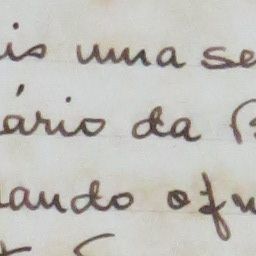 is uma se
ário da B
ando o fu